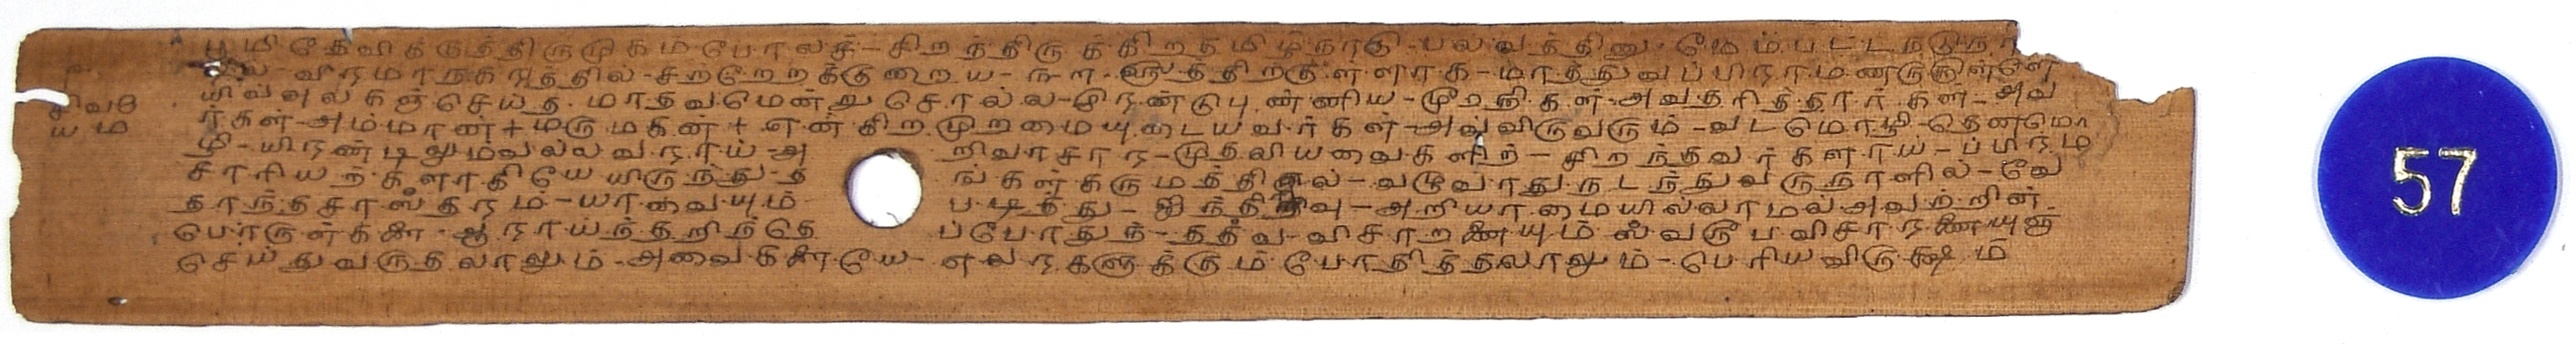 பூமி தேவிக்குத்திருமுகம் போலச்-சிறந்திருக்கிற தமிழ்நாடு-பலவத்தினு மேம்பட்ட நடுநா
வீரமாநகரத்தில்-சற்றேறக்குறைய- ஈள-னூத்திற்குள்ளாக-மாத்துவப்பிராமணருக்குள்ளே
சிவமே
யம
யிவ்வுலகஞ்செய்த மாதவமென்று சொல்ல-யிரண்டுபுண்ணிய-மூர்திகள்-அவதரித்தார்கள்-அவ
ர்கள்-அம்மாண்+மருமகன்+என்கிற முறமையுடையவர்கள்-அவ்விருவரும்-வடமொழி-தென்மொ
ழி-யிரண்டிலும்வல்லவராய்-அ றிவாசார-முதலியவைகளிற்-சிறந்தவர்களாய்-ப்பிரம
சாரியற்களாகியே யிருந்து-த ங்கள்கருமத்தினால்-வடுவாது நடந்துவருநாளில்-வே
தாந்தசாஸ்தரம்-யாவையும் படித்து-ஐந்திறிவு-அறியாமையில்லாமல் அவற்றின்
பொருள்களை-ஆராய்ந்தறிந்தெ ப்போதுந்-தத்வ-விசாறணையும் ஸ்வரூபவிசாரணையுஞ்
செய்துவருதலாலும்-அவைகளையே-எவரகளுக்கும் போதித்தலாலும்-பெரிய விருக்ஷம்
57